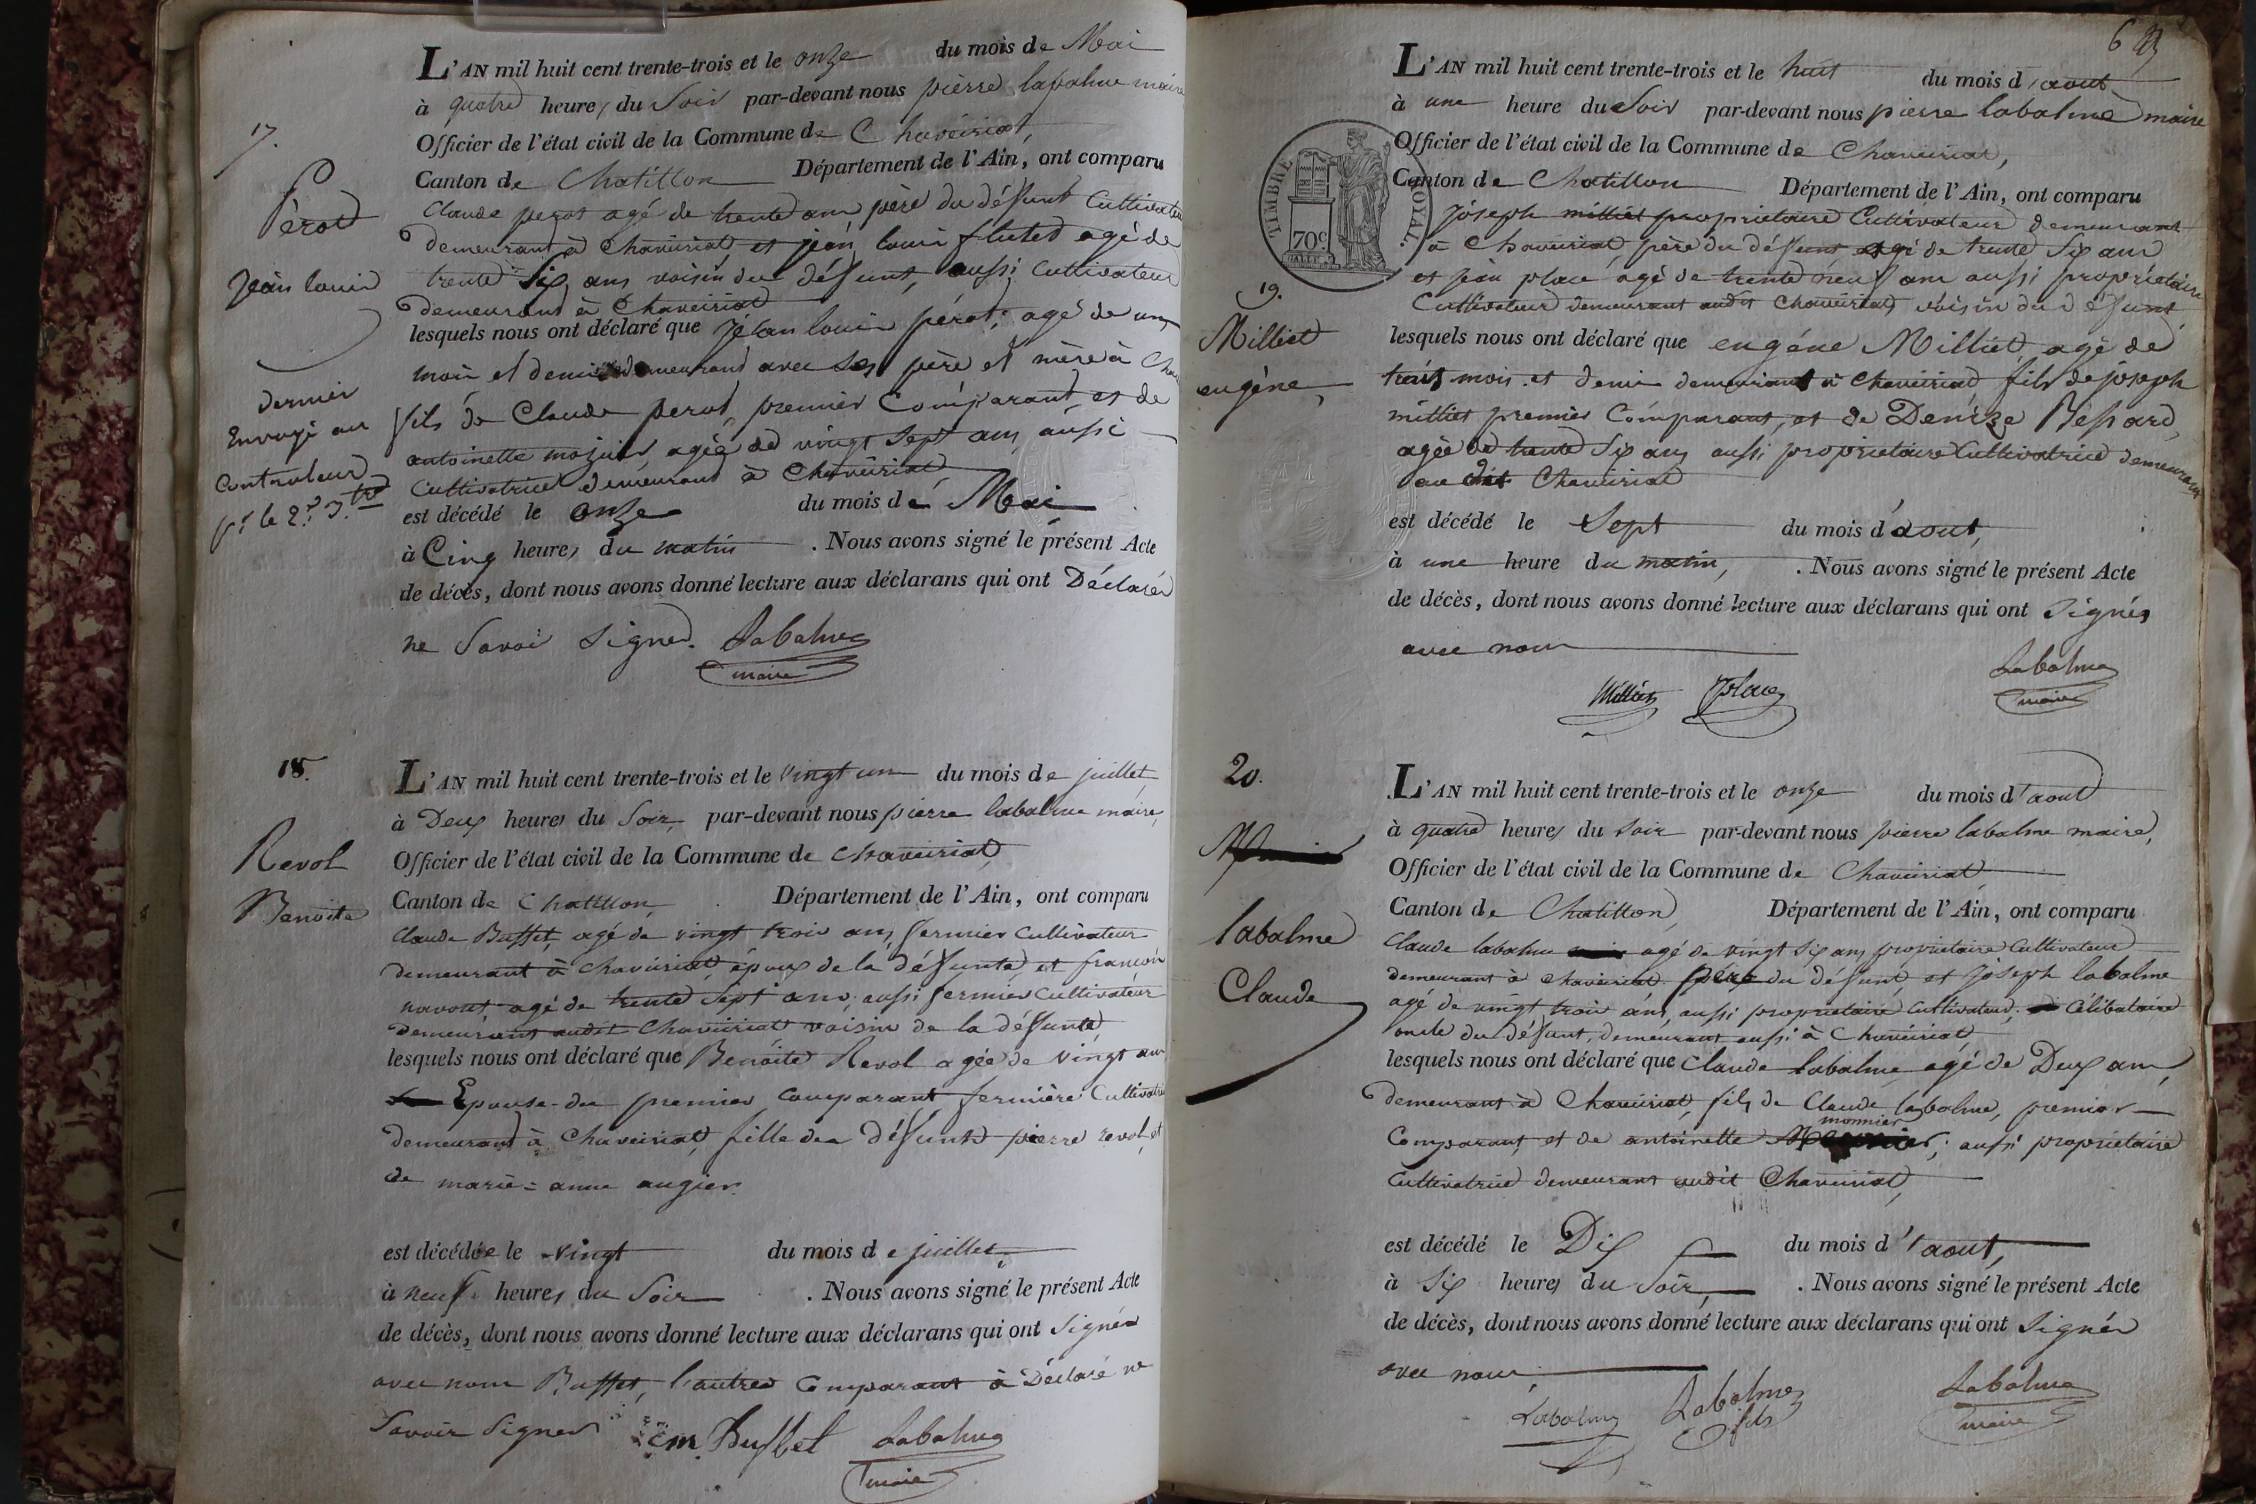 17.
Pérot
jean louis
dernier
Envoyé au
Controleur
pr. le 2e. Tre
L'AN mil huit cent trente-trois et le onze du mois de Mai
à quatre heures du Soir par-devant nous pierre labalme maire
Officier de l'état civil de la Commune de Chaveiriat,
Canton de Chatillon Département de l'Ain, ont comparu
Claude perot agé de trente ans père du défunt Cultivateur
demeurant à Chaveiriat, et jean louis flutet agé de
trente Six ans voisin du défunt, aussi Cultivateur
demeurant à Chaveiriat
lesquels nous ont déclaré que Jean louis pérot, agé de un
mois et demi demeurant avec Ses père et mère à
fils de Claude perot, premier Comparant, et de
antoinette agée de vingt Sept ans, aussi
Cultivatrice demeurant à Chaveiriat
est décédé le onze du mois de Mai
à Cinq heures du matin . Nous avons signé le présent Acte
de décès, dont nous avons donné lecture aux déclarans qui ont Déclarés
ne Savoir Signer. Labalme
maire
18.
Revol
Benoite
L'AN mil huit cent trente-trois et le vingt un du mois de juillet
à Deux heures du Soir, par-devant nous pierre labalme maire,
Officier de l'état civil de la Commune de Chaveiriat,
Canton de Chatillon, Département de l'Ain, ont comparu
Claude Buffet, agé de vingt trois ans, fermier Cultivateur
demeurant à Chaveiriat époux de la défunte, et francois
navout agé de trente Sept ans, aussi fermier Cultivateur
demeurant audit Chaveiriat voisin de la défunte
lesquels nous ont déclaré que Benoite Revol agée de vingt ans
Epouse du premier Comparant fermière Cultivatrice
demeurant à Chaveiriat, fille de défunt pierre revol, et
de marie=anne augier
est décédée le vingt du mois de juillet
à neuf heures du Soir . Nous avons signé le présent Acte
de décès, dont nous avons donné lecture aux déclarans qui ont Signés
avec nous Buffet, l'autre Comparant à Déclaré ne
Savoir Signer Buffet Labalme
maire
6
TIMBRE ROYAL.
70c.
19.
Milliet
eugène,
L'AN mil huit cent trente-trois et le huit du mois d'aout
à une heure du Soir par-devant nous pierre labalme maire
Officier de l'état civil de la Commune de Chaveiriat,
Canton de Chatillon Département de l'Ain, ont comparu
Joseph milliet proprietaire Cultivateur demeurant
à Chaveiriat, père du défunt agé de trente Six ans
et jean place agé de trente neuf ans aussi propriétaire
Cultivateur demeurant audit Chaveiriat, voisin du défunt
lesquels nous ont déclaré que eugéne Milliet agé de
trois mois et demi demeurant à Chaveiriat fils de joseph
milliet premier Comparant, et de Denize Bessard,
agée de trente Six ans aussi proprietaire Cultivatrice demeurant
au dit Chaveiriat
est décédé le Sept du mois d'aout,
à une heure du matin, . Nous avons signé le présent Acte
de décès, dont nous avons donné lecture aux déclarans qui ont Signés
avec nous
Labalme
maire
Milliet Place
20.
labalme
Claude
L'AN mil huit cent trente-trois et le onze du mois d'aout
à quatre heures du Soir par-devant nous pierre labalme maire,
Officier de l'état civil de la Commune de Chaveiriat
Canton de Chatillon, Département de l'Ain, ont comparu
Claude labalme agé de vingt Six ans, proprietaire Cultivateur
demeurant à Chaveiriat père du défunt et joseph labalme
agé de vingt trois ans, aussi proprietaire Cultivateur, Célibataire
oncle du défunt, demeurant aussi à Chaveiriat
lesquels nous ont déclaré que Claude labalme agé de Deux ans,
demeurant à Chaveiriat, fils de Claude labalme, premier
monnier
Comparant, et de antoinette aussi proprietaire
Cultivatrice demeurant audit Chaveiriat,
est décédé le Dix du mois d'aout,
à Six heures du Soir, . Nous avons signé le présent Acte
de décès, dont nous avons donné lecture aux déclarans qui ont Signés
avec nous
Labalme Labalme Labalme
fils maire